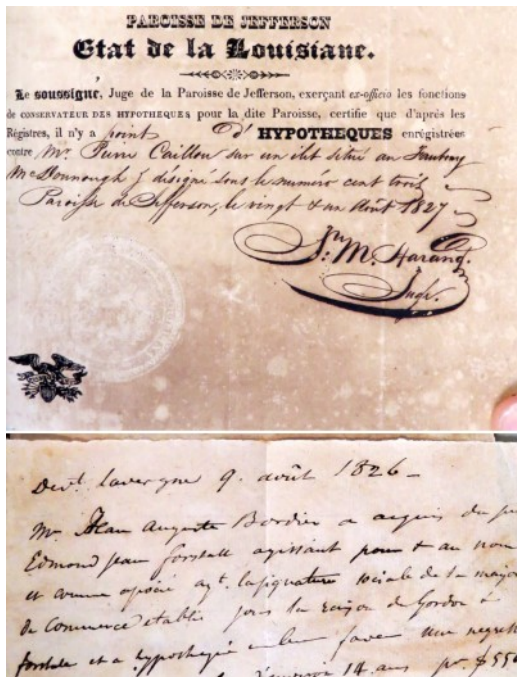 PAROISSE DE JEFFERSON
Etat de la Louisiane.
Le soussigné, Juge de la Paroisse de Jefferson, exerçant ex-officio les fonctions
de CONSERVATEUR DES HYPOTHEQUES pour la dite Paroisse, certifie que d'après les
Régistres, il n'y a point D'HYPOTHEQUES enrégistrées
contre Mr. Pierre Caillou sur un ilet situé au Faubourg
McDonnough & désigné sous le numéro cent trois
Paroisse de Jefferson, le vingt & un Août 1827
M. Harang
Juge.
Devt. Lavergne 9. août 1826
Mr. Jean Auguste Bordier a acquis du
Edmond Jean Forstall agissant pour & au nom
et comme associé ayt. la signature sociale de la
de Commerce etablie sous la raison de Gordon &
Forstall et a hypothequé en leur faveur une
14. ans pr.